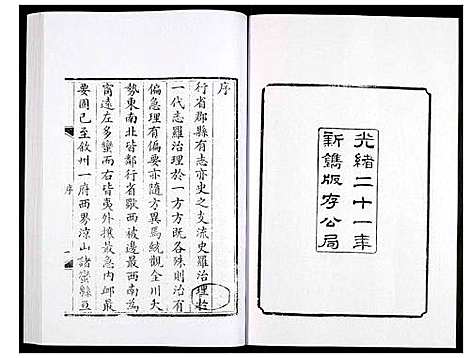 光緒二十一年
新鐫版存公局
序
行省郡縣有志亦史之支流史羅治理於
一代志羅治理於一方方既各殊則治有
偏急理有偏要亦隨方異焉統觀全川大
勢東南北皆鄰行省西被邊最西南為
甯遠左多蠻而右皆夷外撩最急內邮最
要固已至敘州一府西界涼山諸蠻縣亘
序